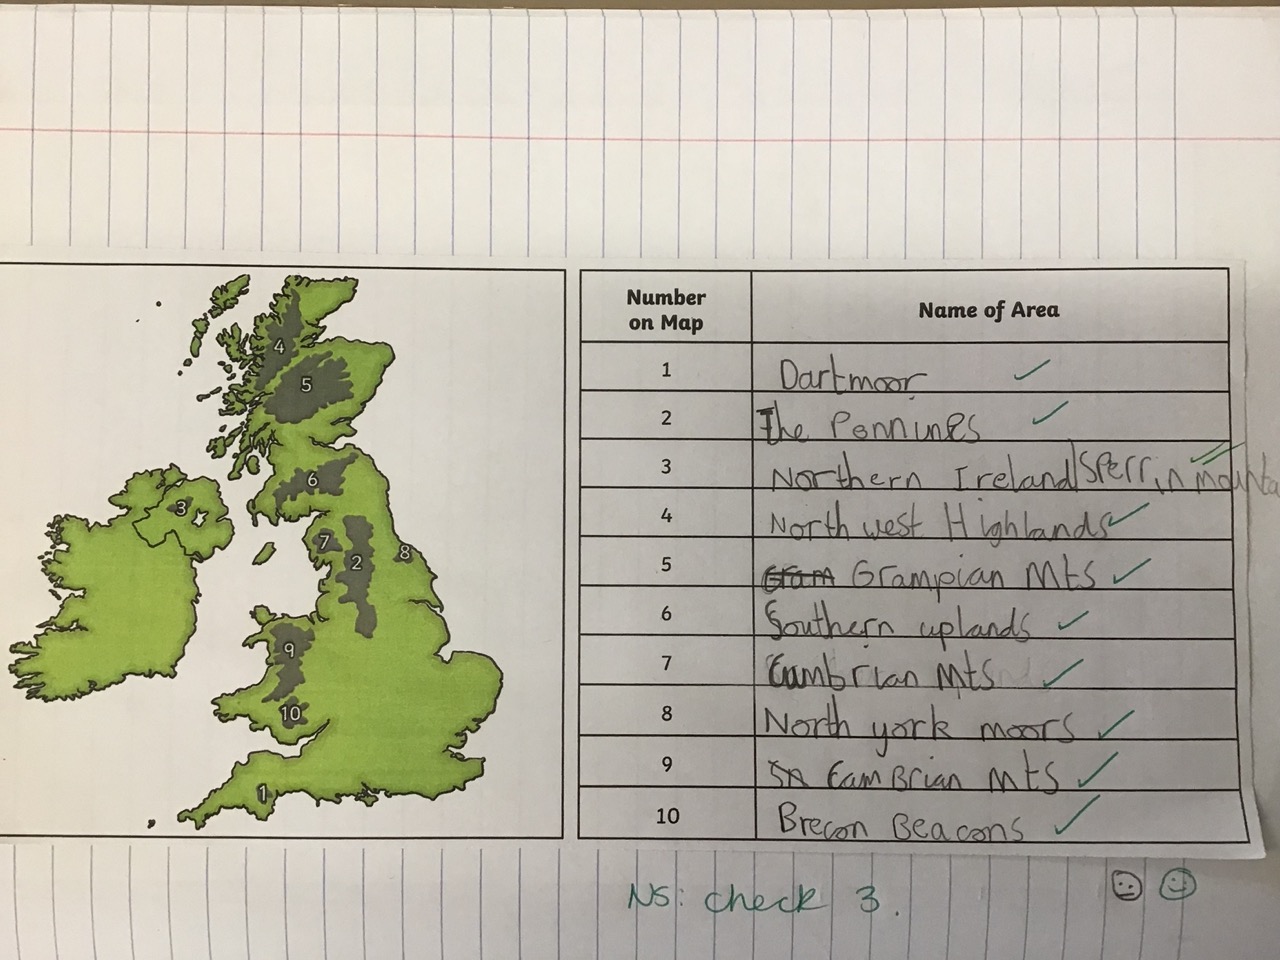 Number on Map
Name of Area
4
5
6
3
7
2
8
9
10
1
1 Dartmoor
2 The Pennines
3 Northern Ireland/Sperrin mounta
4 North west Highlands
5 Gram Grampian Mts
6 Southern uplands
7 Cumbrian Mts
8 North york moors
9 Cambrian Mts
10 Brecon Beacons
NS: check 3.